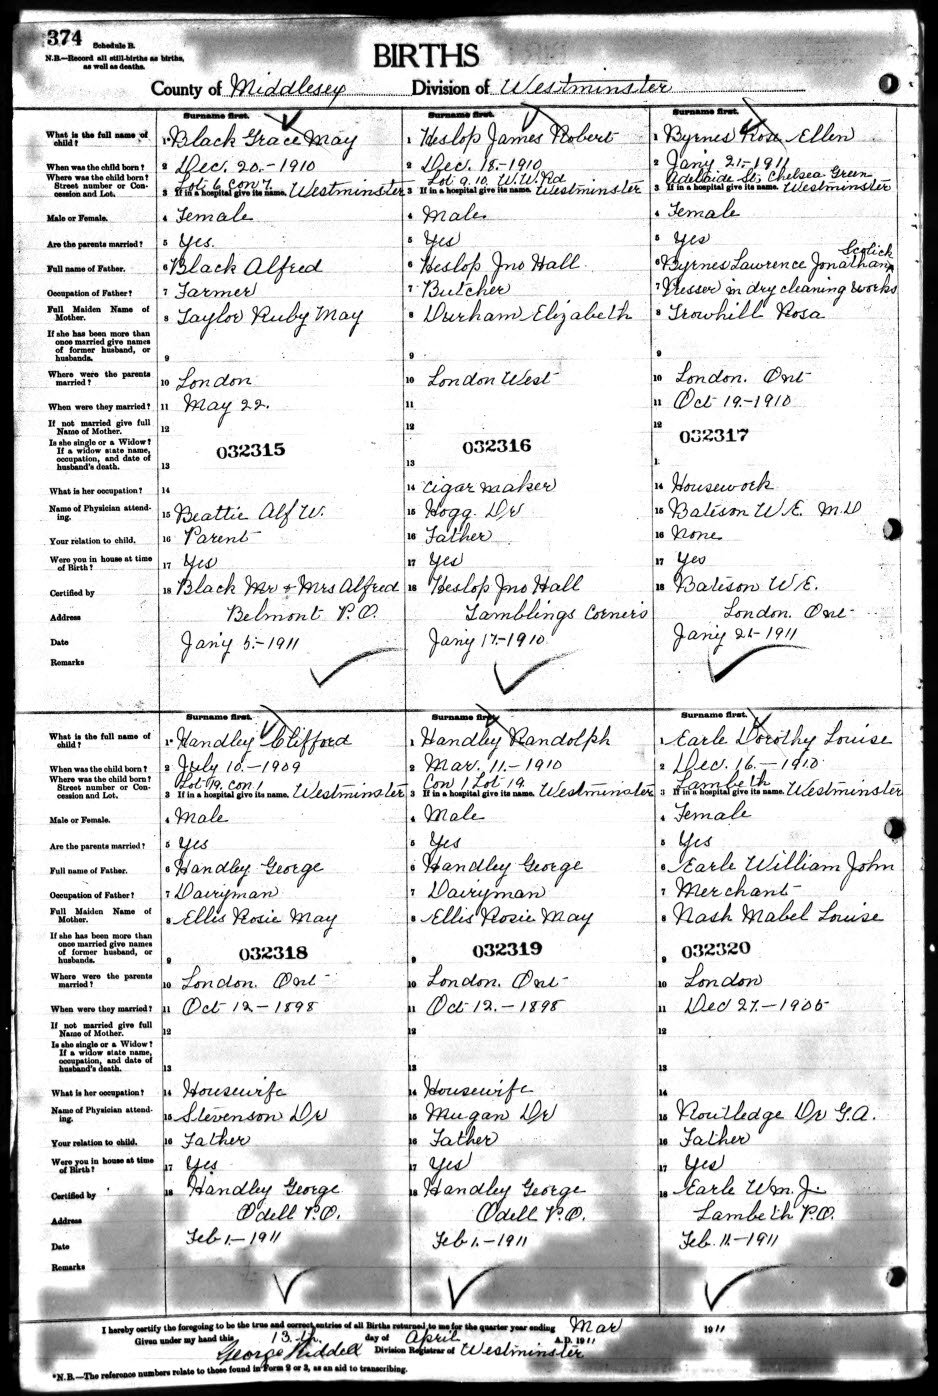 374 Schedule B.
N.B.—Record all still-births as births,
as well as deaths.
BIRTHS
County of Middlesex Division of Westminster
Surname first. Surname first. Surname first.
What is the full name of child? 1 Black Grace May 1 Heslop James Robert 1 Byrnes Rosa Ellen
When was the child born? 2 Dec. 20.-1910 2 Dec. 18.-1910 2 Jany 21-1911
Where was the child born? Street number or Concession and Lot. 3 Lot 6 Con 7. If in a hospital give its name. Westminster 3 Lot 9.10. W.W.Rd If in a hospital give its name. Westminster 3 Adelaide St; Chelsea Green If in a hospital give its name. Westminster
Male or Female. 4 Female 4 Male 4 Female
Are the parents married? 5 Yes. 5 Yes 5 Yes
Full name of Father. 6 Black Alfred 6 Heslop Jno Hall 6 Byrnes Lawrence Jonathan
Occupation of Father? 7 Farmer 7 Butcher 7 Presser in dry cleaning works
Full Maiden Name of Mother. 8 Taylor Ruby May 8 Durham Elizabeth 8 Trowhill Rosa
If she has been more than once married give names of former husband, or husbands. 9 9 9
Where were the parents married? 10 London 10 London West 10 London. Ont
When were they married? 11 May 22. 11 11 Oct 19.-1910
If not married give full Name of Mother. 12 12 12
Is she single or a Widow? If a widow state name, occupation, and date of husband's death. 13 032315 13 032316 032317
What is her occupation? 14 14 cigar maker 14 Housework
Name of Physician attending. 15 Beattie Alf W. 15 Hogg. Dr 15 Bateson W E. M.D
Your relation to child. 16 Parent 16 Father 16 None
Were you in house at time of Birth? 17 Yes 17 Yes 17 Yes
Certified by 18 Black Mr & Mrs Alfred 18 Heslop Jno Hall 18 Bateson W E.
Address Belmont P.O. Tamblings Corners London. Ont
Date Jany 5.-1911 Jany 17.-1910 Jany 21-1911
Remarks
Surname first. Surname first. Surname first.
What is the full name of child? 1 Handley Clifford 1 Handley Randolph 1 Earle Dorothy Louise
When was the child born? 2 July 10.-1909 2 Mar. 11.-1910 2 Dec. 16.-1910
Where was the child born? Street number or Concession and Lot. 3 Lot 19. Con 1 If in a hospital give its name. Westminster 3 Con 1 Lot 19. If in a hospital give its name. Westminster 3 Lambeth If in a hospital give its name. Westminster
Male or Female. 4 Male 4 Male 4 Female
Are the parents married? 5 Yes 5 Yes 5 Yes
Full name of Father. 6 Handley George 6 Handley George 6 Earle William John
Occupation of Father? 7 Dairyman 7 Dairyman 7 Merchant
Full Maiden Name of Mother. 8 Ellis Rosie May 8 Ellis Rosie May 8 Nash Mabel Louise
If she has been more than once married give names of former husband, or husbands. 9 032318 9 032319 9 032320
Where were the parents married? 10 London. Ont 10 London. Ont 10 London
When were they married? 11 Oct 12-1898 11 Oct 12.-1898 11 Dec 27.-1905
If not married give full Name of Mother. 12 12 12
Is she single or a Widow? If a widow state name, occupation, and date of husband's death. 13 13 13
What is her occupation? 14 Housewife 14 Housewife 14
Name of Physician attending. 15 Stevenson Dr 15 Mugan Dr 15 Routledge Dr G.A.
Your relation to child. 16 Father 16 Father 16 Father
Were you in house at time of Birth? 17 Yes 17 Yes 17 Yes
Certified by 18 Handley George 18 Handley George 18 Earle Wm. J.
Address Odell P.O. Odell P.O. Lambeth P.O.
Date Feb 1.-1911 Feb 1.-1911 Feb. 11.-1911
Remarks
I hereby certify the foregoing to be the true and correct entries of all Births returned to me for the quarter year ending Mar 1911
Given under my hand this 13th day of April A.D. 1911
George Riddell Division Registrar of Westminster
*N.B.—The reference numbers relate to those found in Form 2 or 3, as an aid to transcribing.